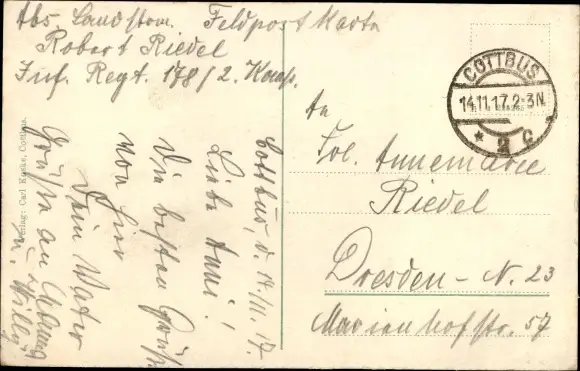 Abs. Landstm. Feldpost Karte
Robert Riedel
Inf. Regt. 178/2. Komp.
COTTBUS
14.11.17. 2-3N
* 2 c
An
Frl. Annemarie
Riedel
Dresden - N. 23
Marienhofstr. 57
Cottbus, d. 14/11. 17.
Liebe Anni!
Die besten Grüße
von hier
Dein Vater
Grüße an Mama
u. Willy
Verlag: Carl Kuske, Cottbus.